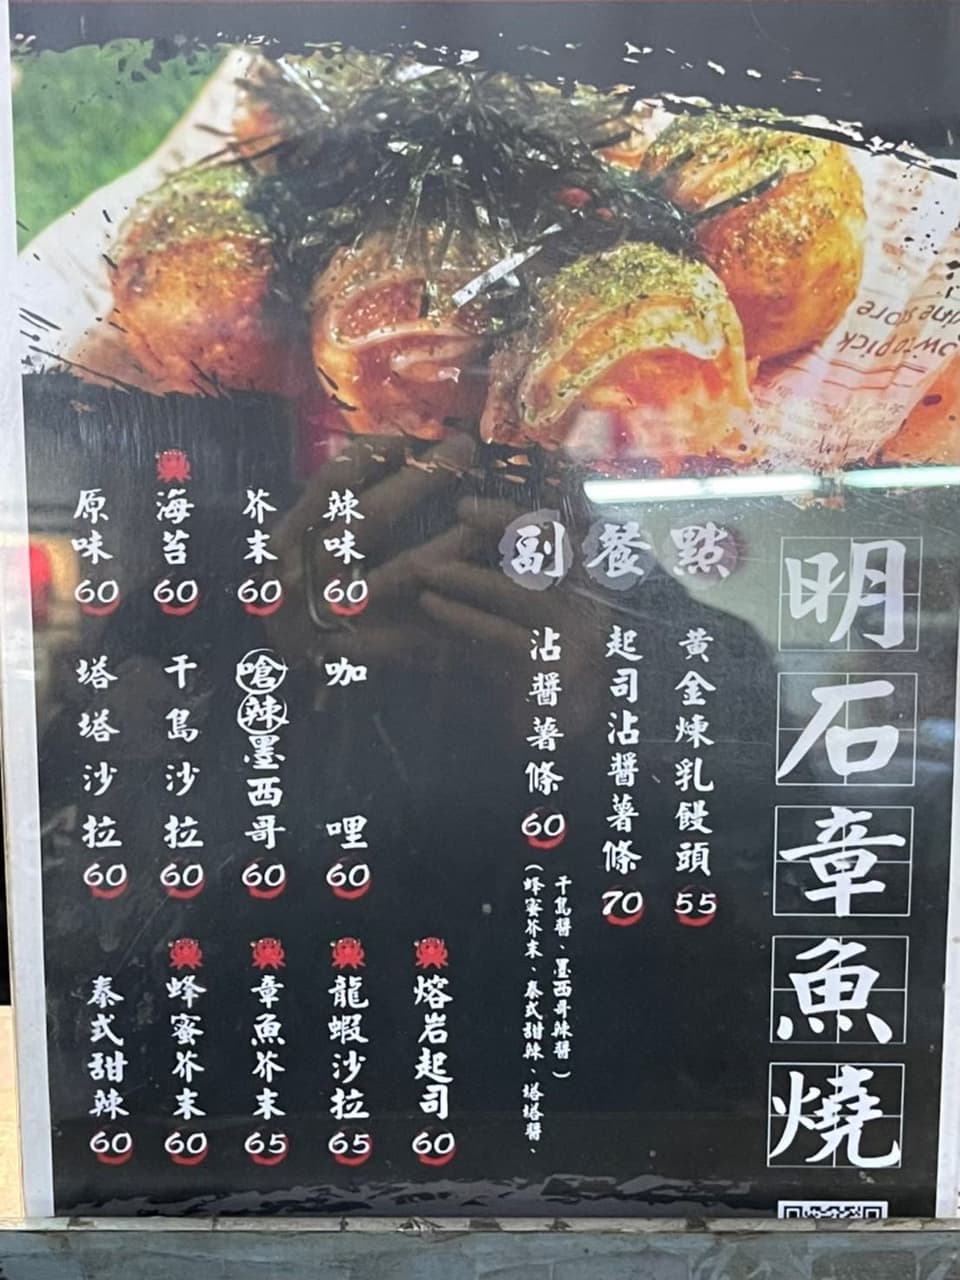 明石章魚燒
副餐點
黃金煉乳饅頭 55
起司沾醬薯條 70
沾醬薯條 60
(蜂蜜芥末、泰式甜辣、塔塔醬、
千島醬、墨西哥辣醬)
辣味 60
芥末 60
海苔 60
原味 60
咖哩 60
嗆辣墨西哥 60
千島沙拉 60
塔塔沙拉 60
熔岩起司 60
龍蝦沙拉 65
章魚芥末 65
蜂蜜芥末 60
泰式甜辣 60